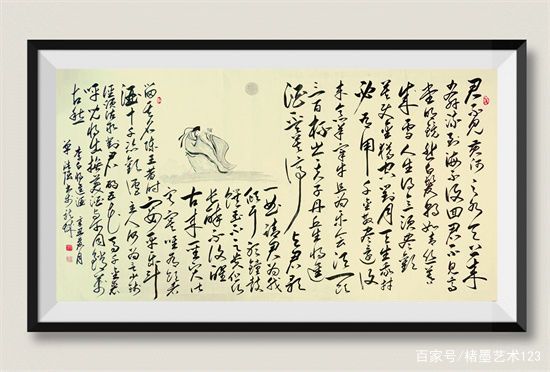 君不见黄河之水天上来
奔流到海不复回君不见高
堂明镜悲白发朝如青丝暮
成雪人生得意须尽欢
莫使金樽空对月天生我材
必有用千金散尽还复
来烹羊宰牛且为乐会须一饮
三百杯岑夫子丹丘生将进
酒君莫停与君歌
一曲请君为我
倾耳听钟鼓
馔玉不足贵但愿
长醉不复醒
古来圣贤皆
寂寞唯有饮者
留其名陈王昔时宴平乐斗
酒十千恣欢谑主人何为言少钱
径须沽取对君酌五花马千金裘
呼儿将出换美酒与尔同销万
古愁 李白将进酒
百家号/楮墨艺术123